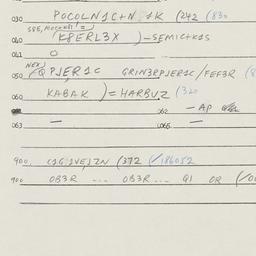 030 POCOLN1C+N 1K (242 (830
SSE, MOCENTI =
040 (K8ERL3X )-SEMIC+K1S
041 O
NEX
050 (QPJER1C GRIN3RPJER1C/FEF3R (8
060 KABAK )=HARBUZ (320
062 - AP
063 — 065 —
900. C1G1VEJZN (372 (/186052
900 OB3R --- OB3R --- Q1 OR (/0